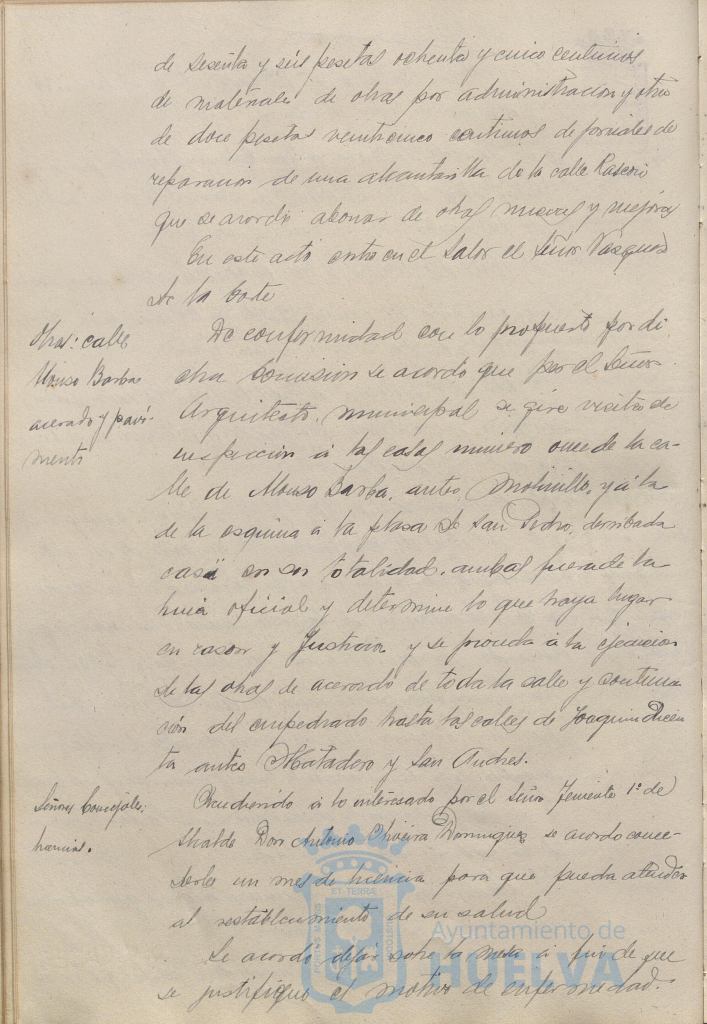 de sesenta y seis pesetas ochenta y cinco centimos
de materiales de obras por administracion y otro
de doce pesetas veinticinco centimos de jornales de
reparacion de una alcantarilla de la calle Rascon
que se acordó abonar de obras nuevas y mejoras
En este acto entró en el Salon el Señor Vazquez
de la Corte
Obras: calle
Alonso Barba
acerado y pavi-
mento
De conformidad con lo propuesto por di
cha Comision se acordó que por el Señor
Arquitecto municipal se gire visita de
inspeccion á las casas número once de la ca-
lle de Alonso Barba, antes Molinillo, y á la
de la esquina á la plaza de San Pedro, derribada
casi en su totalidad, ambas fuera de la
linea oficial y determine lo que haya lugar
en razon y Justicia y se proceda á la ejecucion
de las obras de acerado de toda la calle y continua
ción del empedrado hasta las calles de Joaquin Dicen
ta antes Matadero y San Andres.
Señores Concejales:
licencias.
Accediendo á lo interesado por el Señor Teniente 1º de
Alcalde Don Antonio Oliveira Dominguez se acordó conce-
derle un mes de licencia para que pueda atender
al restablecimiento de su salud
Se acordó dejar sobre la mesa á fin de que
se justifique el motivo de enfermedad.
Ayuntamiento de
HUELVA